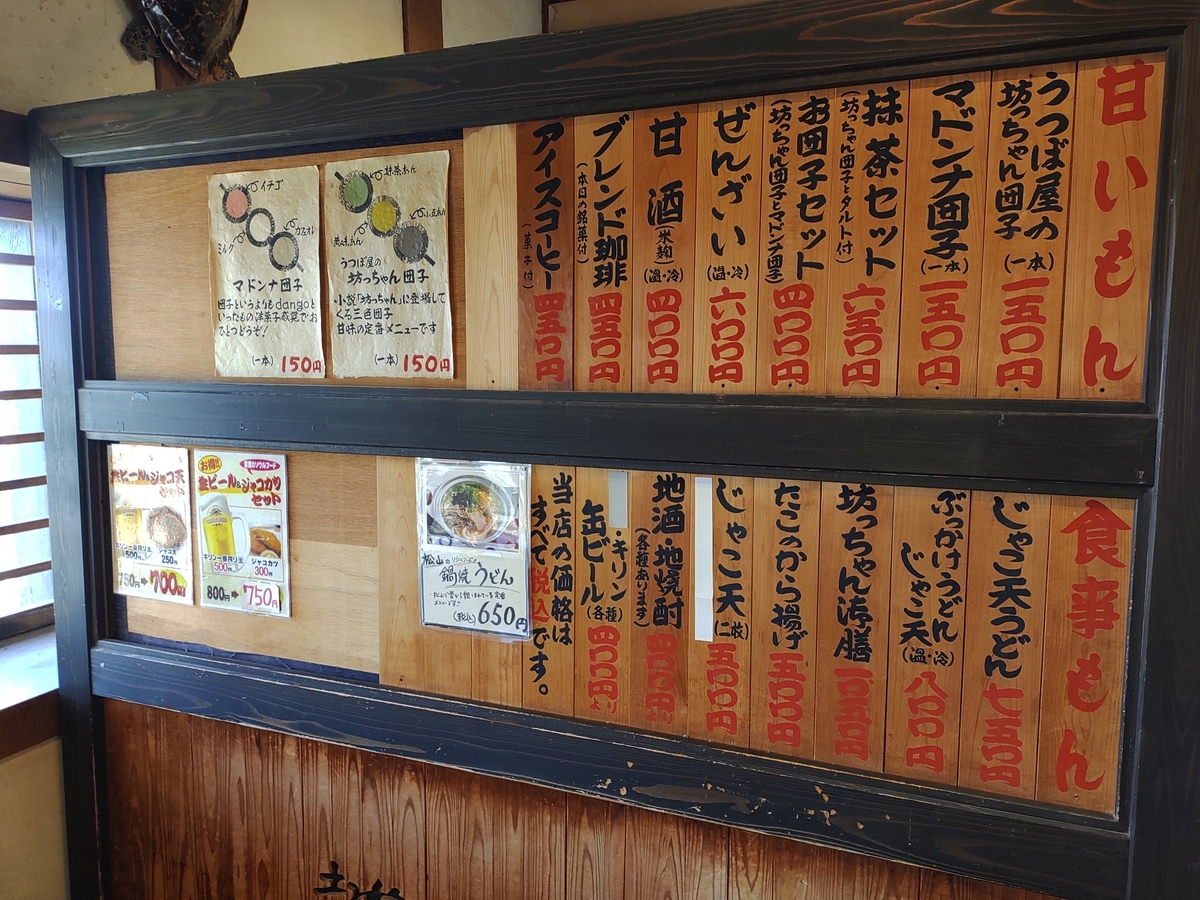 甘いもん
うつぼ屋の
坊っちゃん団子
(一本)
一五〇円
マドンナ団子
(一本)
一五〇円
抹茶セット
(坊っちゃん団子とタルト付)
六五〇円
お団子セット
(坊っちゃん団子とマドンナ団子)
四〇〇円
ぜんざい
(温・冷)
六〇〇円
甘酒
(米麹)
(温・冷)
四〇〇円
ブレンド珈琲
(本日の銘菓付)
四五〇円
アイスコーヒー
(菓子付)
四五〇円
抹茶あん
小豆あん
うつぼ屋の
坊っちゃん団子
・小説「坊っちゃん」に登場して
くる三色団子
甘味の定番メニューです
(一本) 150円
イチゴ
カスタード
ミルク
マドンナ団子
団子というよりもdangoと
いったもの洋菓子感覚でお
ひとつどうぞ!
(一本) 150円
食事もん
じゃこ天うどん
七五〇円
ぶっかけうどん
じゃこ天
(温・冷)
八〇〇円
坊っちゃん御膳
たこのから揚げ
五〇〇円
じゃこ天
(二枚)
五〇〇円
地酒・地焼酎
(各種あります)
四〇〇円より
・キリン
缶ビール
(各種)
四〇〇円より
当店の価格は
すべて税込です。
松山の
鍋焼うどん
メニューです!!
(税込)650円
お得!!
愛媛のソウルフード
生ビール&ジャコカツ
セット
キリン一番搾り生
500円
ジャコカツ
300円
800円→750円
生ビール&ジャコ天
セット
キリン一番搾り生
500円
ジャコ天
250円
750円→700円